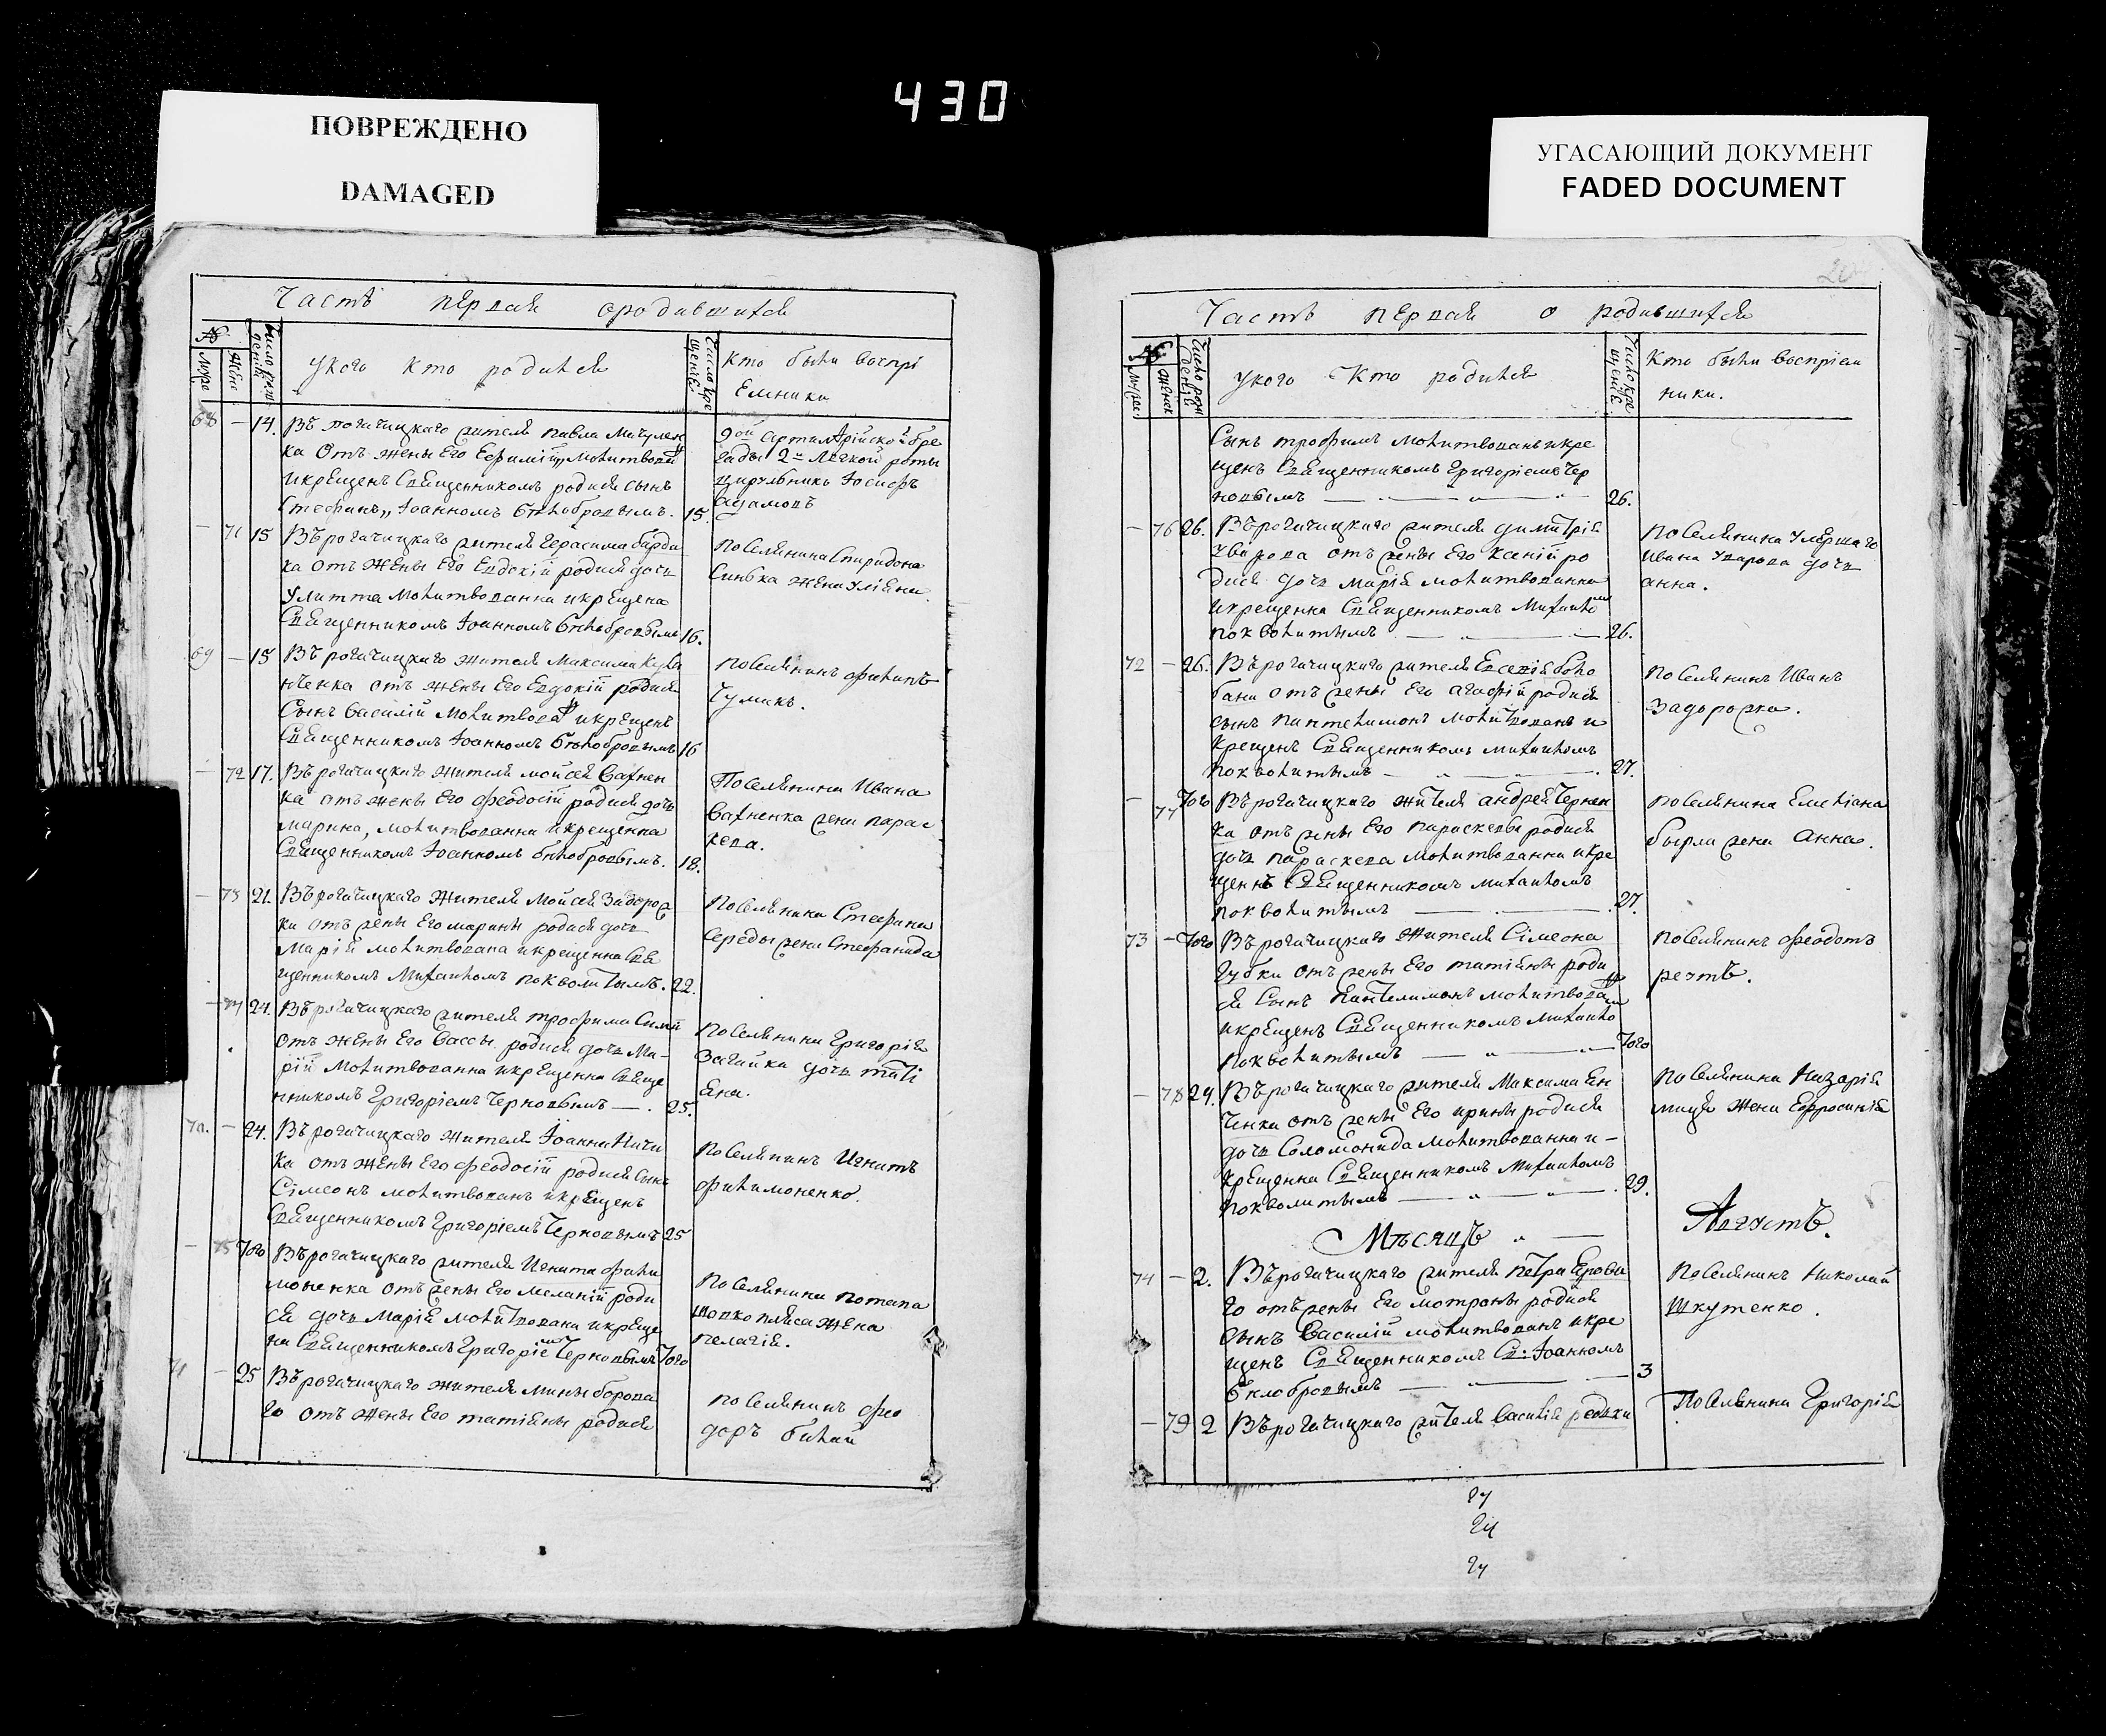 430
ПОВРЕЖДЕНО
DAMAGED
УГАСАЮЩИЙ ДОКУМЕНТ
FADED DOCUMENT
Часть первая о родившихся
№
Муже
Жене
Число рождения
у кого кто родился
Число крещения
Кто были воспрі
Емники
68 — 14. Въ рогачицкаго жителя павла
ка отъ жены его Ефиміи, молитвован
и крещенъ Священникомъ родился сынъ
Стефанъ, Іоанномъ бѣлобровымъ. 15.
9ой артиллрійской бре
гады 2й легкой роты
цирульникъ Іосифъ
адамовъ
— 71 15 Въ рогачицкаго жителя Герасима барди
ка отъ жены его Евдокіи родися дочь
Улитта молитвованна и крещена
Священникомъ Іоанномъ бѣлобровымъ 16.
поселянина Спиридона
Синька жена Уліяна.
69 — 15 Въ рогачицкаго жителя Максима
нченка отъ жены его Евдокіи родися
Сынъ Василій молитвован и крещенъ
Священникомъ Іоанномъ бѣлобровымъ 16
поселянинъ филипъ
Чумакъ.
— 72 17. Въ рогачицкаго жителя мойсея Вахнен
ка отъ жены его феодосіи родися дочь
марина, молитвованна и крещенна
Священникомъ Іоанномъ бѣлобровымъ. 18.
Поселянина Ивана
Вахненка жена парас
кева.
— 73 21. Въ рогачицкаго жителя Мойсея Задорож
ки отъ жены его марины родися дочь
Марія молитвована и крещенна Свя
щенникомъ Михаиломъ поквалитымъ. 22.
поселянина Стефана
Середы жена Стефанида
— 74 24. Въ рогачицкаго жителя трофима
отъ жены его Вассы родися дочь Ма-
рія молитвованна и крещенна Свяще
нникомъ Григоріемъ Черновымъ — . 25.
поселянина Григорія
Загайка дочь таті
яна.
70. — 24. Въ рогачицкаго жителя Іоанна
ка отъ жены его феодосіи родися сынъ
Сімеонъ молитвованъ и крещенъ
Священникомъ Григоріемъ Черновымъ 25
поселянинъ Игнатъ
филимоненко.
— 75 Того Въ рогачицкаго жителя Игната фили
моненка отъ жены его меланіи роди
ся дочь Марія молитвована и креще
на Священникомъ Григоріемъ Черновымъ Того
поселянина потапа
жена
пелагія.
71 — 25 Въ рогачицкаго жителя мины борова
го отъ жены его татіяны родися
поселянинъ фео
доръ билай
Часть первая о родившихся
№
Мужес
Женск
Число рождения
у кого кто родился
Число крещения
Кто были воспріем
ники.
Сынъ трофимъ молитвованъ и кре
щенъ Священникомъ Григоріемъ Чер
новымъ — „ — „ — 26.
— 76 26. Въ рогачицкаго жителя димитрія
Ударода отъ жены его Ксеніи ро
дися дочь марія молитвованна
и крещенна Священникомъ Михаило
поквалитымъ — „ — 26.
поселянина умершаго
Ивана Ударода дочь
анна.
72 — 26. Въ рогачицкаго жителя Евсевія боло
бана отъ жены его агафіи родися
сынъ пантелимонъ молитвованъ и
крещенъ Священникомъ михаиломъ
поквалитымъ — „ — . 27.
поселянинъ Иванъ
Задорожка.
— 77 Того Въ рогачицкаго жителя андрея Чернен
ка отъ жены его параскевы родися
дочь параскева молитвованна и кре
щенна Священникомъ михаиломъ
поквалитымъ — . — 27.
поселянина Емеліана
бырла жена анна.
73 — Того Въ рогачицкаго жителя Сімеона
Губки отъ жены его татіяны роди
ся Сынъ Пантелимонъ молитвован
и крещенъ Священникомъ Михаило
поквалитымъ — „ — Того
поселянинъ феодотъ
— 78 29. Въ рогачицкаго жителя Максима Ен
ченка отъ жены его ирины родися
дочь Соломонида молитвованна и -
крещенна Священникомъ Михаиломъ
поквалитымъ — „ — „ — . 29.
поселянина Назарія
жена Евфросинія
Мѣсяцъ „ — Августъ.
74 — 2. Въ рогачицкаго жителя петра Ярова
го отъ жены его мотроны родися
сынъ Василій молитвованъ и кре
щенъ Священникомъ Іоанномъ
бѣлобровымъ — „ — 3
поселянинъ Николай
Шкутенко.
— 79 2 Въ рогачицкаго жителя василія редки
Поселянина Григорія